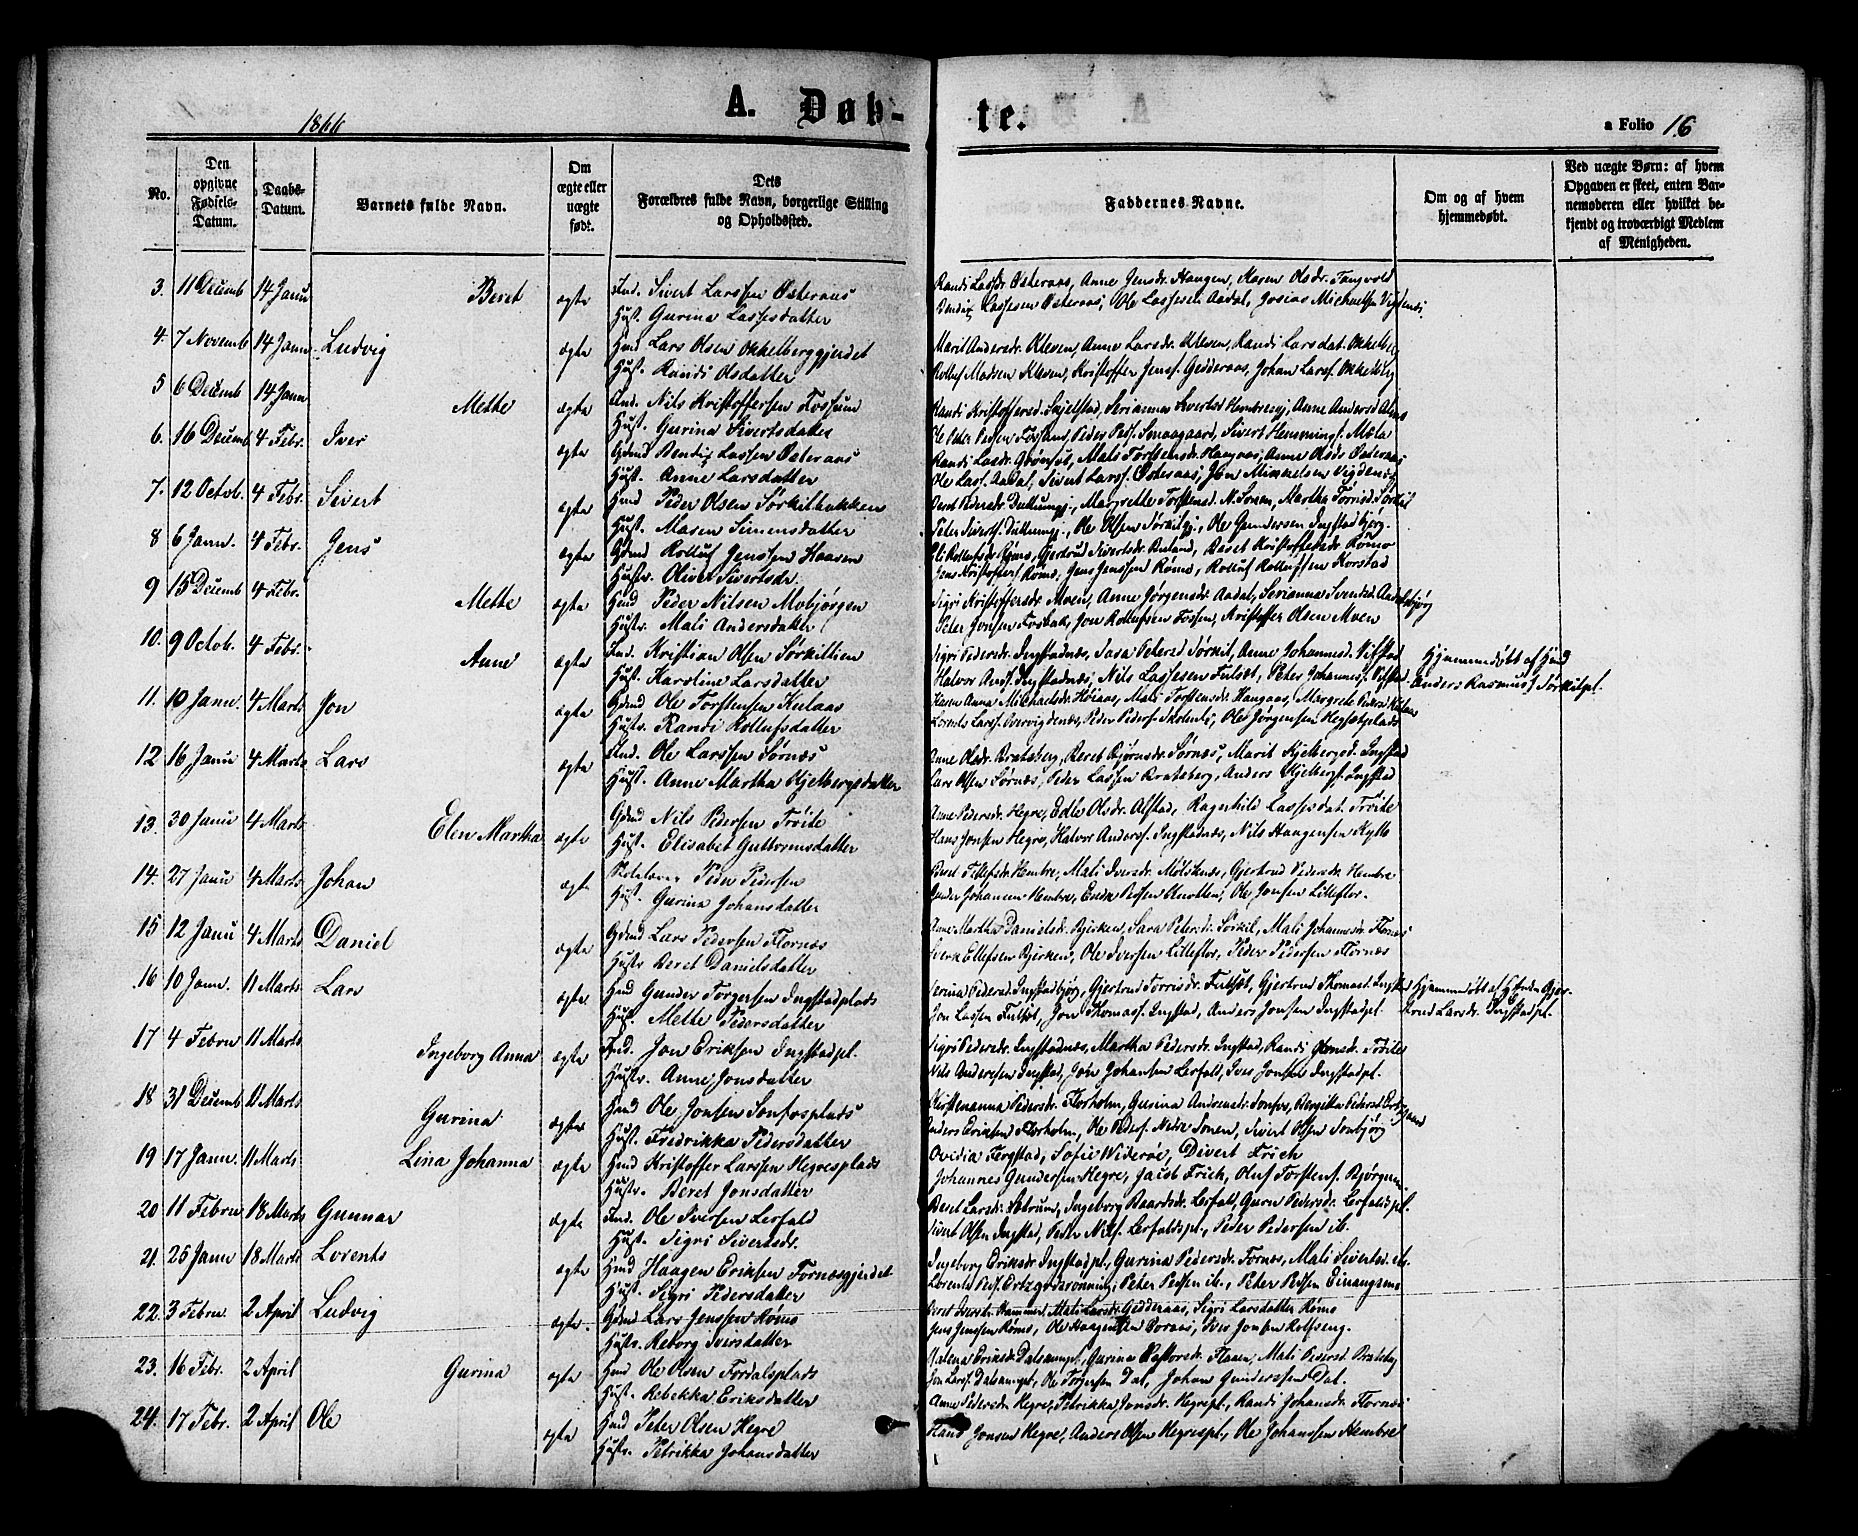 1866
A. Døb-
te.
a Folio 16
No.
Den opgivne Fødsels-Datum.
Daabs-Datum.
Barnets fulde Navn.
Om ægte eller uægte født.
Dets Forældres fulde Navn, borgerlige Stilling og Opholdssted.
Faddernes Navne.
Om og af hvem hjemmedøbt.
Ved uægte Børn: af hvem Opgaven er skeet, enten Barnemoderen eller hvilket bekjendt og troværdigt Medlem af Menigheden.
3. 11 Decemb 14 Janu Beret ægte Ind. Sivert Larssen Østeraas
Hust. Gurina Lassesdatter
Randi Lassdr Østeraas, Anne Jensdr. Haugen, Maren Olsdr. Tangvold
Bendix Lassesen Østeraas, Ole Lassesen Aadal, Josias Michaelsen
4. 7 Novemb 14 Janu Ludvig ægte Hmd Lars Olsen Okkelberggjerdet
Hust. Randi Olsdatter
Marit Andersdr. Kleven, Anne Larsdr. Kleven, Randi Larsdat. Okkelberg
Rolluf Madsen Kleven, Kristoffer Jenss. Gedderaas, Johan Larss. Okkelberg
5 6 Decemb 14 Janu Mette ægte Ind. Nils Kristoffersen Fossum
Hust. Gurina Sivertsdatter
Randi Kristoffersd. Skjelstad, Anne Andersd
Peder Peds. Smaagaard, Sivert Hemmings. Mæla
6. 16 Decemb 4 Febr. Iver ægte Gdmd Bendix Lassen Østeraas
Hust. Anne Larsdatter
Randi Lasdr. Grønset, Mali Torstensdr. Haugaas, Anne Olsdr Østeraas
Ole Lass. Aadal, Sivert Larss. Østeraas, Jon Mikkelsen
7. 12 Octob. 4 Febr. Sivert ægte Hmd Peder Olsen Sørkilbakken
Hust. Maren Simensdatter
Margrethe Torstensd. N. Sonen, Martha Torrisd. Sørkil
Ole Olsen Sørkilgj., Ole Gundersen Ingstadbjørg.
8 6 Janu. 4 Febr. Jens ægte Gdmd Rolluf Jenssen Haasen
Hustr. Olive Sivertsdr.
Gjertrud Sivertsdr. Ruland, Beret Kristoffersdr. Rømo
Jens Kristoffers. Rømo, Jens Jenssen Rømo, Rolluf Rollufssen Korstad
9 15 Decemb 4 Febr. Mette ægte Hmd Peder Nilsen Mobjørgen
Hustr. Mali Andersdatter
Sigri Kristoffersdr. Moen, Anne Jørgensdr. Aadal, Serianna Svendsd.
Peter Jonsen Fosbak, Jon Rollufsen Fossen, Kristoffer Olsen Moen
10. 9 Octob. 4 Febr. Anne ægte Ind. Kristian Olsen Sørkillien
Hust. Karoline Larsdatter
Sigri Pedersdr. Ingstadnæs, Sara Petersd Sørkil, Anne Johannesd. Vifstad
Halvor Ands. Ingstadnæs, Nils Lassesen Fulset, Peter Johannss. Vifstad
Hjemmedøbt af Hmd
Anders Rasmuss. Sørkilpl.
11. 10 Janu. 4 Marts Jon ægte Gdmd Ole Torstensen Kulaas
Hustr. Randi Rollufsdatter
Karen Anna Michaelsdr. Høiaas, Mali Torstensdr. Haugaas, Margrete Pedersd. Kulaas
Lorents Larss. Overvigdenæs, Peder Peders. Skolenli, Ole Jørgensen Hegsetplads
12 16 Janu 4 Marts Lars ægte Ind. Ole Larssen Sørnæs
Hust. Anne Martha Kjelbergsdatter
Anne Olsdr. Bratsberg, Beret Bjørnsdr. Sørnæs, Marit Kjelbergsd. Ingstad
Lars Olsen Sørnæs, Peder Lassen Bratsberg, Anders Kjelbergs. Ingstad
13. 30 Janu 4 Marts Elen Martha ægte Gdmd Nils Pedersen Trøite
Hust. Elisabet Guttormsdatter
Anne Pedersdr. Hegre, Edle Olsdr. Alstad, Ragnhild Lassesdat. Trøite
Hans Jonsen Hegre, Halvor Anderss. Ingstadnæs, Nils Haagensen Kyllo
14. 27 Janu 4 Marts Johan ægte Skolelærer Peder Pedersen
Hust. Gurina Johansdatter
Beret Ellefsdr. Hembre, Mali Iversdr. Molsknæs, Gjertrud Pedersdr. Hembre
Peder Johansen Hembre, Ole Jonsen Lilleflor.
15 12 Janu 4 Marts Daniel ægte Gdmd Lars Pedersen Flornæs
Hustr Beret Danielsdatter
Anne Martha Danielsd. Bjerken, Sara Petersd. Sørkil, Mali Johannesdr. Flornæs
Sverk Ellefsen Bjerken, Ole Iversen Lilleflor, Peder Pedersen Flornæs
16 10 Janu. 11 Marts Lars ægte Hmd Gunder Torgersen Ingstadplads
Hust. Mette Pedersdatter
Serina Pedersd. Ingstadbjørg, Gjertrud Torrisdr. Fulset, Gjertrud Thomasd. Ingstad
Jon Lassen Fulset, Jon Thomass. Ingstad, Anders Jonsen Ingstadpl.
Hjemmedøbt af Kvinden Gjer-
trud Larsdr. Ingstadpl.
17 4 Febru 11 Marts Ingeborg Anna ægte Ind. Jon Eriksen Ingstadpl.
Hustr. Anne Jonsdatter
Sigri Pedersdr. Ingstadnæs, Martha Pedersdr. Ingstad, Randi Jonsdr. Trøite
Nils Andersen Ingstad, Jon Johansen Lerfald, Iver Jonsen Ingstadpl.
18 31 Decemb 11 Marts Gurina ægte Hmd Ole Jonsen Sonfosplads
Hust. Fredrikka Pedersdatter
Kirstenanna Pedersdr. Florholm, Gurina Andreasdr. Sonfos, Bergitta Pedersd
Anders Eriksen Florholm, Ole Peders. Nedre Sonen, Sivert Olsen Sonbjørg
19 17 Janu. 11 Marts Lina Johanna ægte Hmd Kristoffer Larssen Hegresplads
Hustr. Beret Jonsdatter
Ovidia Fergstad, Sofie Widerøe, Divert Frich
Johannes Gundersen Hegre, Jacob Frich, Oluf Torstens. Bjørgum
20 11 Febru 18 Marts Gunnar ægte Ind. Ole Iversen Lerfald
Hust. Sigri Sivertsdr.
Beret Larsdr. Setrum, Ingeborg Baardsdr. Lerfald, Guru Pedersdr. Lerfaldspl.
Sivert Olsen Ingstad, Peder Nils. Lerfaldspl., Peder Pedersen ib.
21. 25 Janu 18 Marts Lorents ægte Hmd Haagen Eriksen Fornæsgjerdet
Hust. Sigri Pedersdatter
Ingeborg Eriksdr Ingstadpl., Gurina Pedersdr. Fornæs, Mali Sivertsd. ib.
Lorents Peds. Ertzgaardsronning, Peter Pedsen ib., Peter Pedsen Einangsmo
22. 3 Febru. 2 April Ludvig ægte. Gdmd Lars Jenssen Rømo
Hustr. Reborg Iversdatter
Beret Iversdr. Hammer, Mali Larsdr. Gedderaas, Sigri Larsdatter Rømo
Jens Jenssen Rømo, Ole Haagensen Boraas, Iver Jonsen Rolfseng.
23. 16 Febr. 2 April Gurina ægte Hmd Ole Olsen Fordalsplads
Hust. Rebekka Eriksdatter
Malena Eriksdr. Dalsaunpl., Gurina Flaaen, Mali Pedersd. Bratsberg
Jon Larss. Dalsaunpl., Ole Torgersen Dal, Johan Gunderssen Dal.
24. 17 Febr. 2 April Ole ægte Hmd Peter Olsen Hegre
Hustr. Petrikka Johansdatter
Anne Pedersdr. Hegre, Petrikka Jonsdr. Hegrepl., Randi Johansdr. Flornæs
Hans Jonsen Hegre, Anders Olsen Hegrespl., Ole Johanssen Hembre